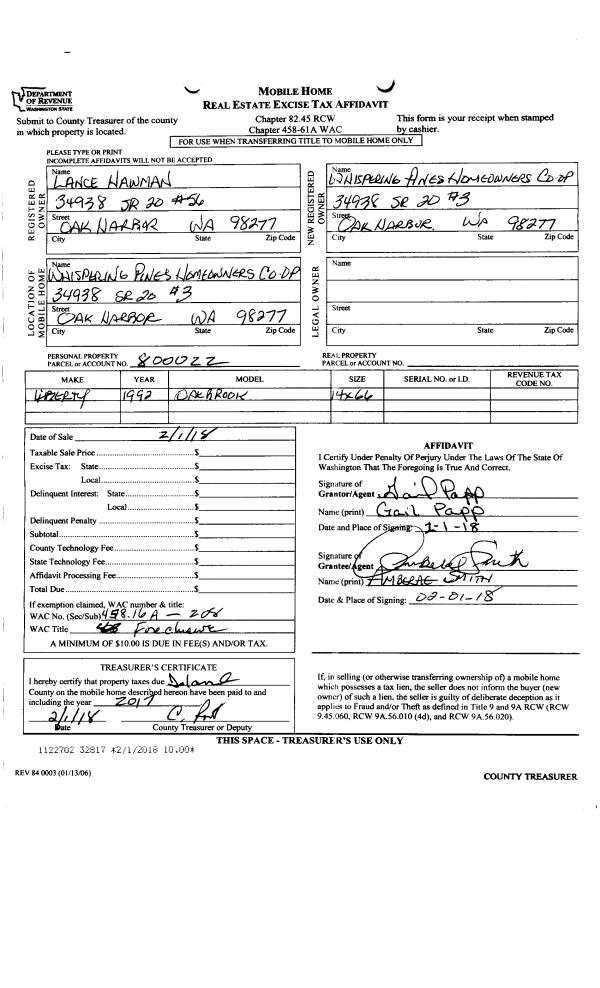 DEPARTMENT
OF REVENUE
WASHINGTON STATE
MOBILE HOME
REAL ESTATE EXCISE TAX AFFIDAVIT
Submit to County Treasurer of the county
in which property is located.
Chapter 82.45 RCW
Chapter 458-61A WAC
This form is your receipt when stamped
by cashier.
FOR USE WHEN TRANSFERRING TITLE TO MOBILE HOME ONLY
PLEASE TYPE OR PRINT
INCOMPLETE AFFIDAVITS WILL NOT BE ACCEPTED
REGISTERED
OWNER
Name
LANCE HAWMAN
34938 SR 20 #56
Street
OAK HARBOR WA 98277
City State Zip Code
NEW REGISTERED
OWNER
Name
WHISPERING PINES HOMEOWNERS CO-OP
34938 SR 20 #3
Street
OAK HARBOR WA 98277
City State Zip Code
LOCATION OF
MOBILE HOME
Name
WHISPERING PINES HOMEOWNERS CO-OP
34938 SR 20 #3
Street
OAK HARBOR WA 98277
City State Zip Code
LEGAL OWNER
Name
Street
City State Zip Code
PERSONAL PROPERTY
PARCEL or ACCOUNT NO. 800022
REAL PROPERTY
PARCEL or ACCOUNT NO.
MAKE YEAR MODEL SIZE SERIAL NO. or I.D. REVENUE TAX
CODE NO.
LIBERTY 1992 OAKBROOK 14x66
Date of Sale 2/1/18
Taxable Sale Price $
Excise Tax: State $
Local $
Delinquent Interest: State $
Local $
Delinquent Penalty $
Subtotal $
County Technology Fee $
State Technology Fee $
Affidavit Processing Fee $
Total Due $
If exemption claimed, WAC number & title:
WAC No. (Sec/Sub) 458.16A - 208
WAC Title Foreclosure
A MINIMUM OF $10.00 IS DUE IN FEE(S) AND/OR TAX.
AFFIDAVIT
I Certify Under Penalty Of Perjury Under The Laws Of The State Of
Washington That The Foregoing Is True And Correct.
Signature of
Grantor/Agent Gail Papp
Name (print) Gail Papp
Date and Place of Signing: 2-1-18
Signature of
Grantee/Agent
Name (print) AMBERAE SMITH
Date & Place of Signing: 02-01-18
TREASURER'S CERTIFICATE
I hereby certify that property taxes due Island
County on the mobile home described hereon have been paid to and
including the year 2017
2/1/18
Date County Treasurer or Deputy
If, in selling (or otherwise transferring ownership of) a mobile home
which possesses a tax lien, the seller does not inform the buyer (new
owner) of such a lien, the seller is guilty of deliberate deception as it
applies to Fraud and/or Theft as defined in Title 9 and 9A RCW (RCW
9.45.060, RCW 9A.56.010 (4d), and RCW 9A.56.020).
THIS SPACE - TREASURER'S USE ONLY
1122702 32817 *2/1/2018 10.00*
REV 84 0003 (01/13/06)
COUNTY TREASURER